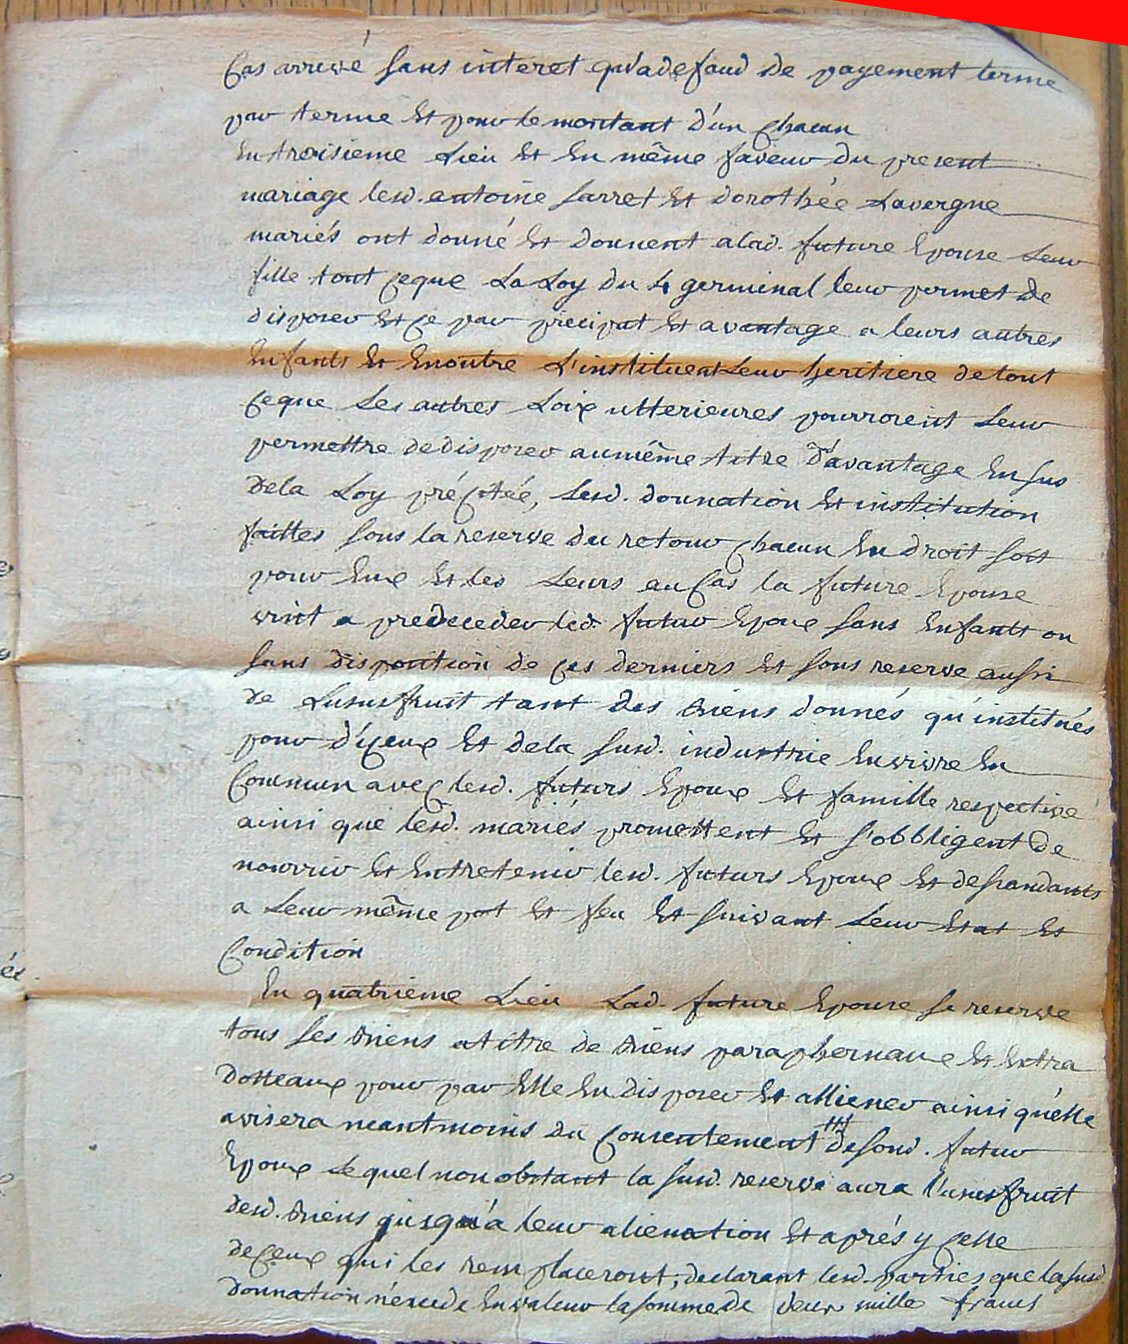 Cas arrivé sans interet qu'a defaud de payement terme
par terme et pour le montant d'un chacun
En troisieme Lieu et En même faveur du present
mariage lesd. antoine sarret et dorothée Lavergne
mariés ont donné et donnent a lad. future Epouse Leur
fille tout ceque La Loy du 4 germinal leur permet de
disposer et ce par preciput et avantage a leurs autres
Enfants et Enoutre L'instituent Leur heritiere de tout
ceque Les autres Loix ulterieures pourroient Leur
permettre de disposer au même titre d'avantage En sus
dela Loy précitée, Lesd. donnation et institution
faittes sous la reserve du retour chacun En droit soit
pour Eux et les Leurs au Cas la future Epouse
vint a predeceder led. futur Epoux sans Enfants ou
sans disposition de ces derniers et sous reserve aussi
de Lusufruit tant des Biens donnés qu'institués
pour d'iceux et dela susd. industrie En vivre En
Commun avec lesd. futurs Epoux et famille respective
ainsi que lesd. mariés promettent et s'obbligent de
nourrir et Entretenir lesd. futurs Epoux et dessandants
a Leur même pot et feu et suivant Leur Etat et
Condition
En quatrieme Lieu Lad. future Epouse se reserve
tous ses Biens atitre de Biens paraphernaux et Extra
dotteaux pour par Elle En disposer et alliener ainsi qu'elle
avisera neantmoins du Consentement de sond. futur
Epoux Lequel non obstant la susd. reserve aura l'usufruit
desd. Biens jusqu'a leur alienation et aprés y celle
deceux qui les remplaceront; declarant lesd. parties que la susd.
donnation n'éxcede En valeur la somme de deux mille francs